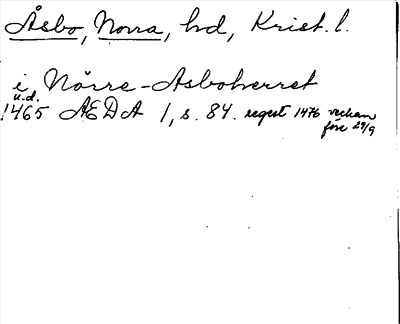 Åsbo, Norra, hd, Krist. l.
i Nörre-Asboherret
u.d.
1465 ÆDA 1, s. 84. regest 1476 veckan
före 29/9